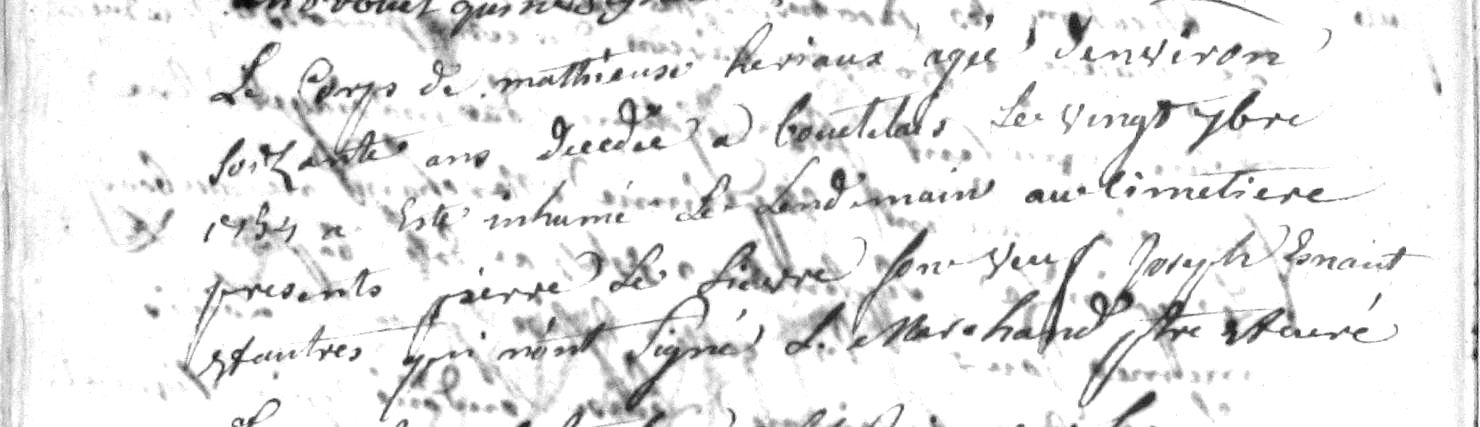 Le Corps de mathieuse heriaux agée denviron
soixante ans decedee a Couetelais Le vingt 7bre
1754 a Esté inhumé Le Lendemain au Cimetiere
presents pierre Le Lievre son veuf Joseph Esnaut
et autres qui n'ont Signé L. Marchand ptre et curé